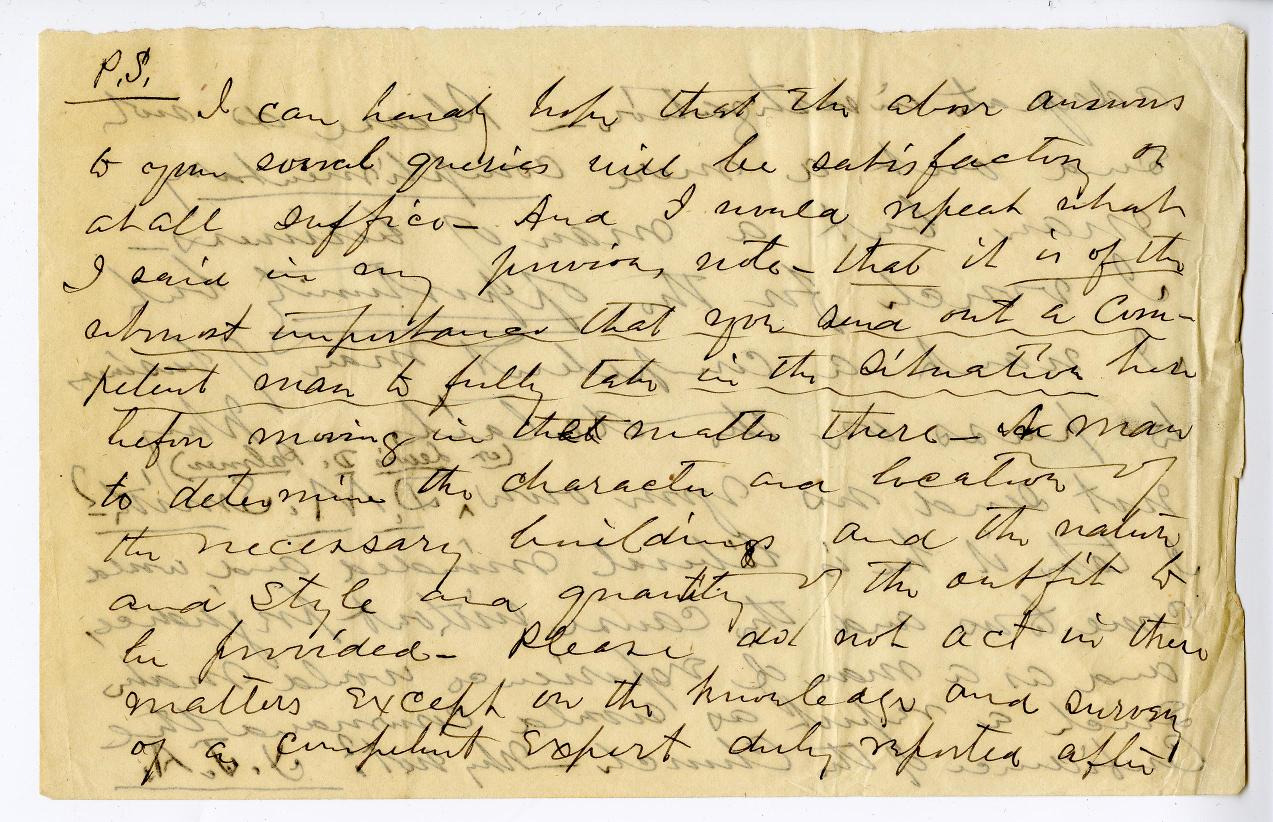 P.S.
I can hardly hope that the above answers
to your several queries will be satisfactory or
at all suffice – And I would repeat what
I said in my previous note – that it is of the
utmost importance that you send out a Com-
petent man to fully take in the situation here
before moving in that matter there – A man
to determine the character and location of
the necessary buildings and the nature
and Style and quantity of the outfit to
be provided – Please do not act in these
matters except on the knowledge and survey
of a competent Expert duly reported after